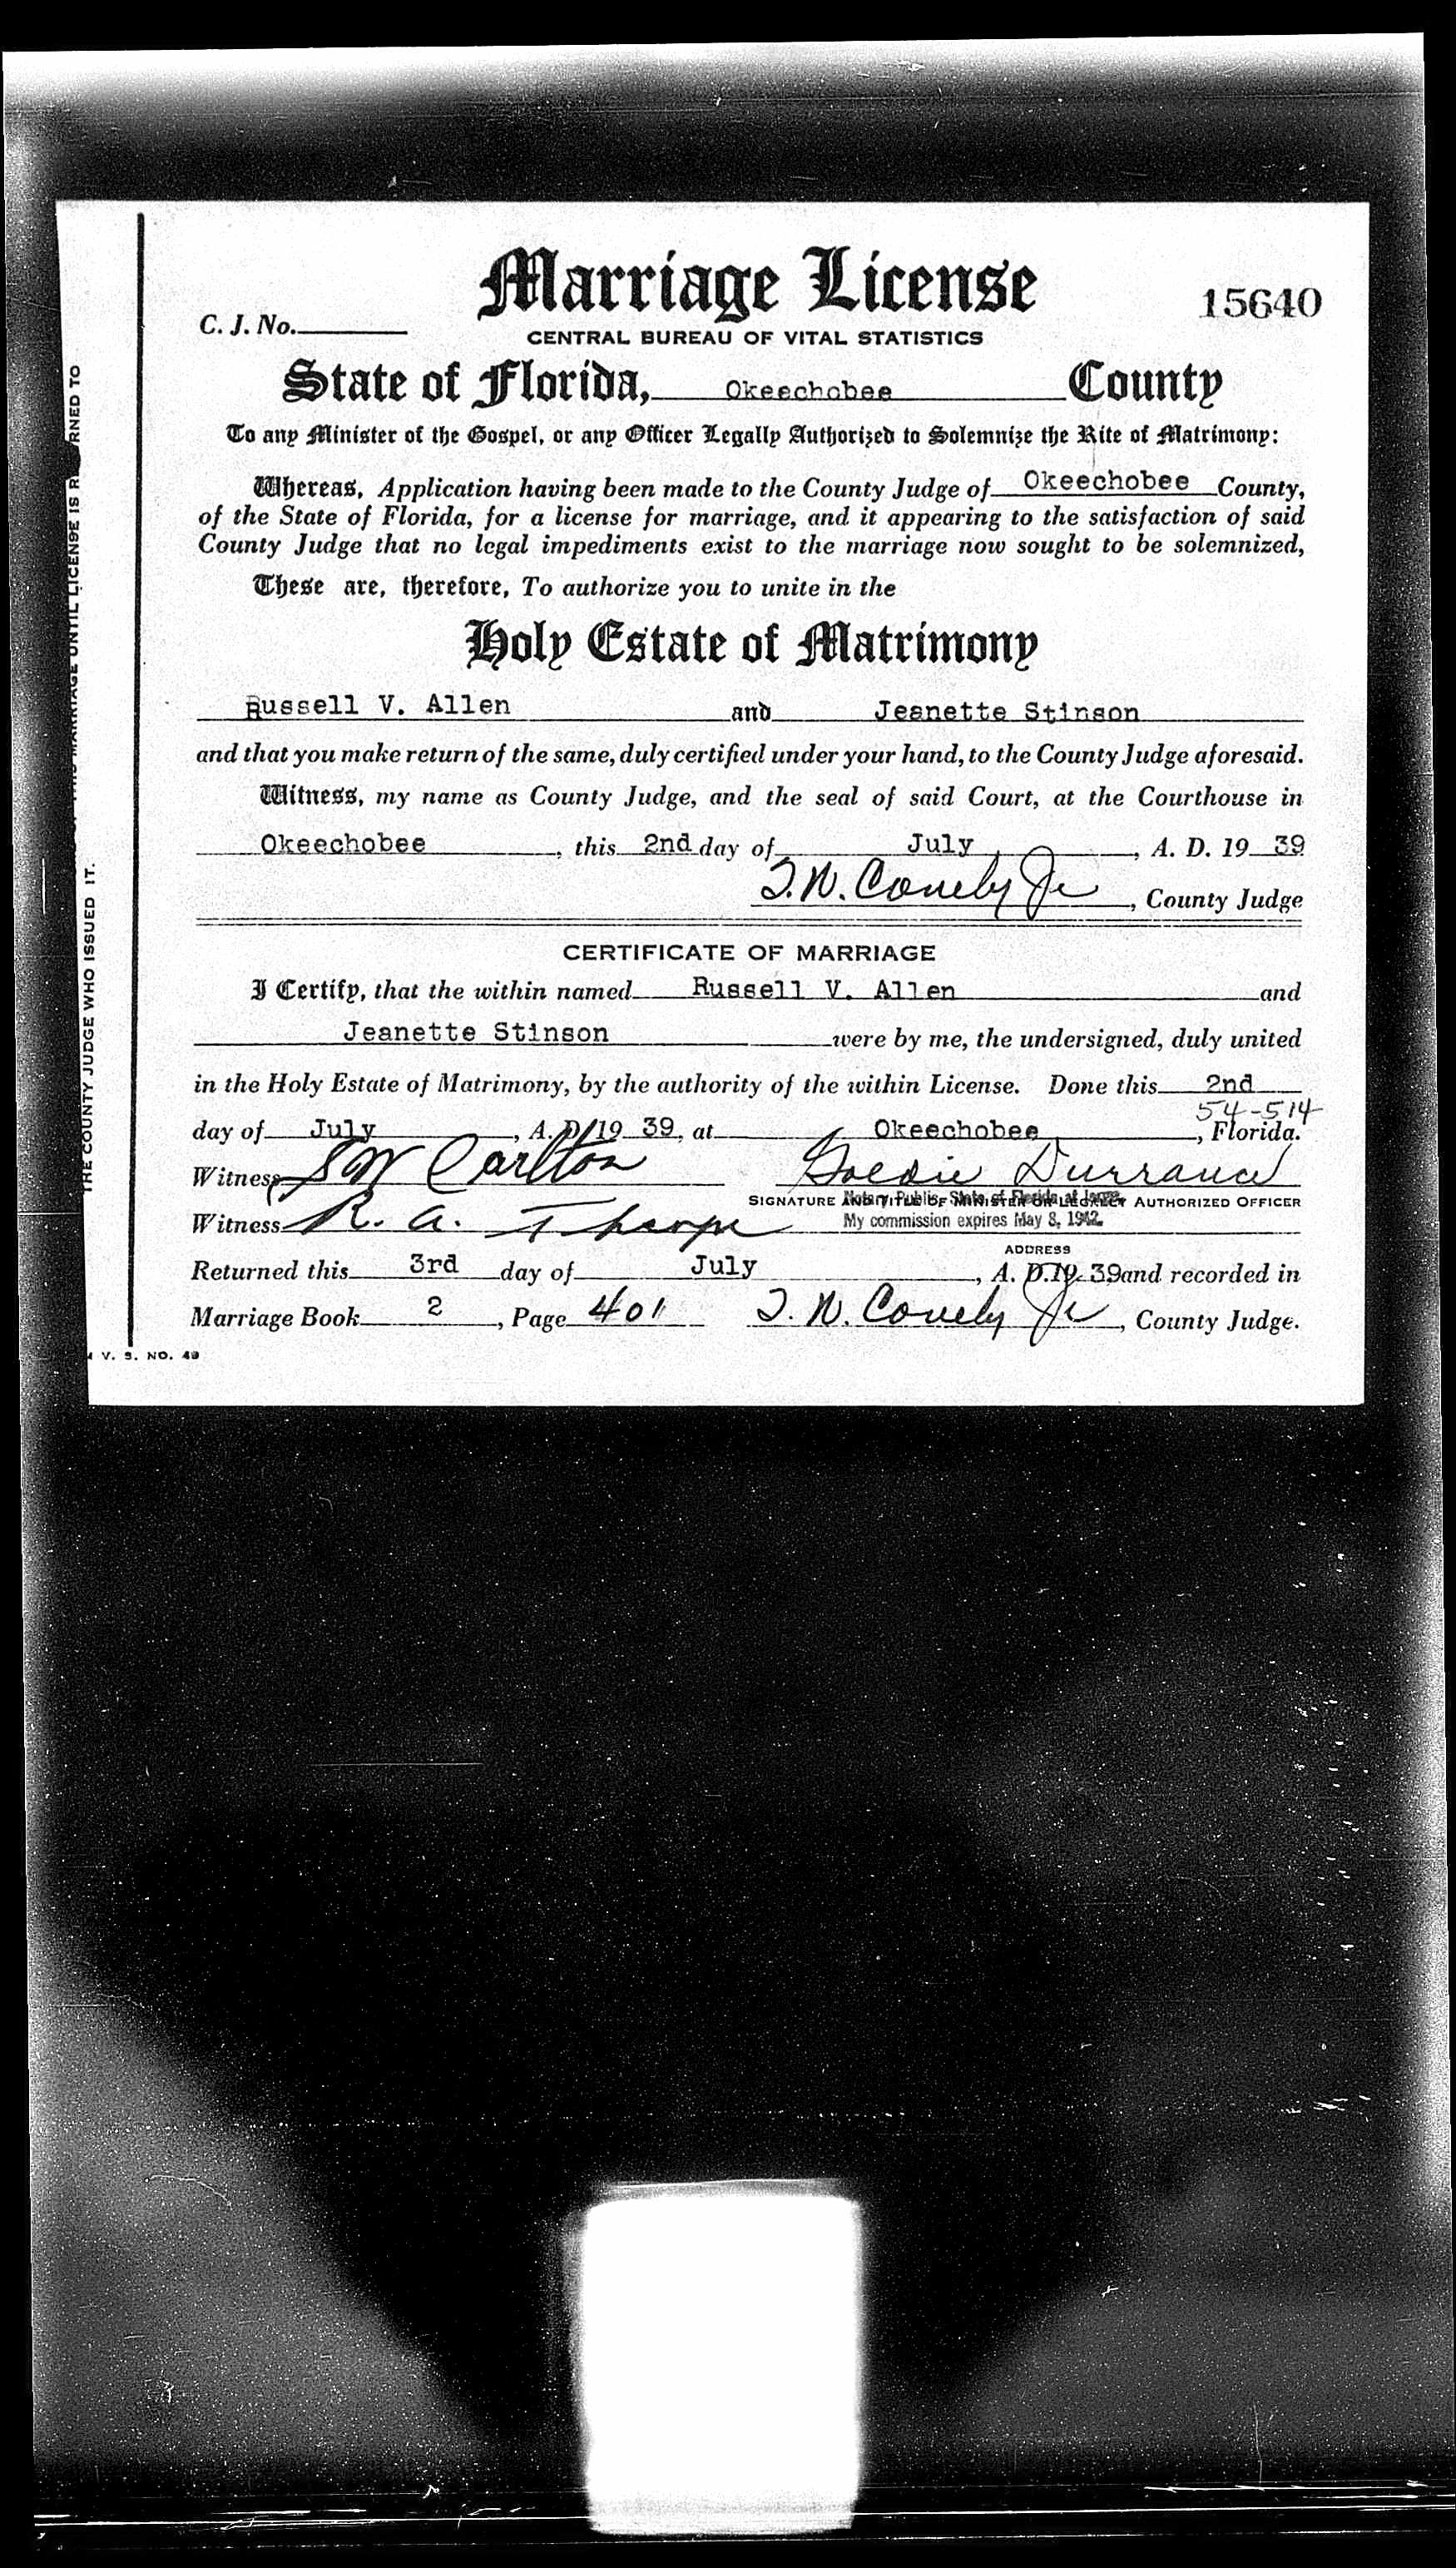 Marriage License
15640
C. J. No.
CENTRAL BUREAU OF VITAL STATISTICS
State of Florida, Okeechobee County
To any Minister of the Gospel, or any Officer Legally Authorized to Solemnize the Rite of Matrimony:
Whereas, Application having been made to the County Judge of Okeechobee County,
of the State of Florida, for a license for marriage, and it appearing to the satisfaction of said
County Judge that no legal impediments exist to the marriage now sought to be solemnized,
These are, therefore, To authorize you to unite in the
Holy Estate of Matrimony
Russell V. Allen and Jeanette Stinson
and that you make return of the same, duly certified under your hand, to the County Judge aforesaid.
Witness, my name as County Judge, and the seal of said Court, at the Courthouse in
Okeechobee, this 2nd day of July, A. D. 19 39
T. W. Conely Jr, County Judge
CERTIFICATE OF MARRIAGE
I Certify, that the within named Russell V. Allen and
Jeanette Stinson were by me, the undersigned, duly united
in the Holy Estate of Matrimony, by the authority of the within License. Done this 2nd
54-514
day of July, A. D. 19 39, at Okeechobee, Florida.
Witness S W Carlton Goldie Durrance
SIGNATURE AND TITLE OF MINISTER OR LEGALLY AUTHORIZED OFFICER
Notary Public, State of Florida at large
Witness R. A. Tharpe My commission expires May 8, 1942.
ADDRESS
Returned this 3rd day of July, A. D. 19 39 and recorded in
Marriage Book 2, Page 401 T. W. Conely Jr, County Judge.
V. S. NO. 49
THIS MARRIAGE UNTIL LICENSE IS RETURNED TO
THE COUNTY JUDGE WHO ISSUED IT.